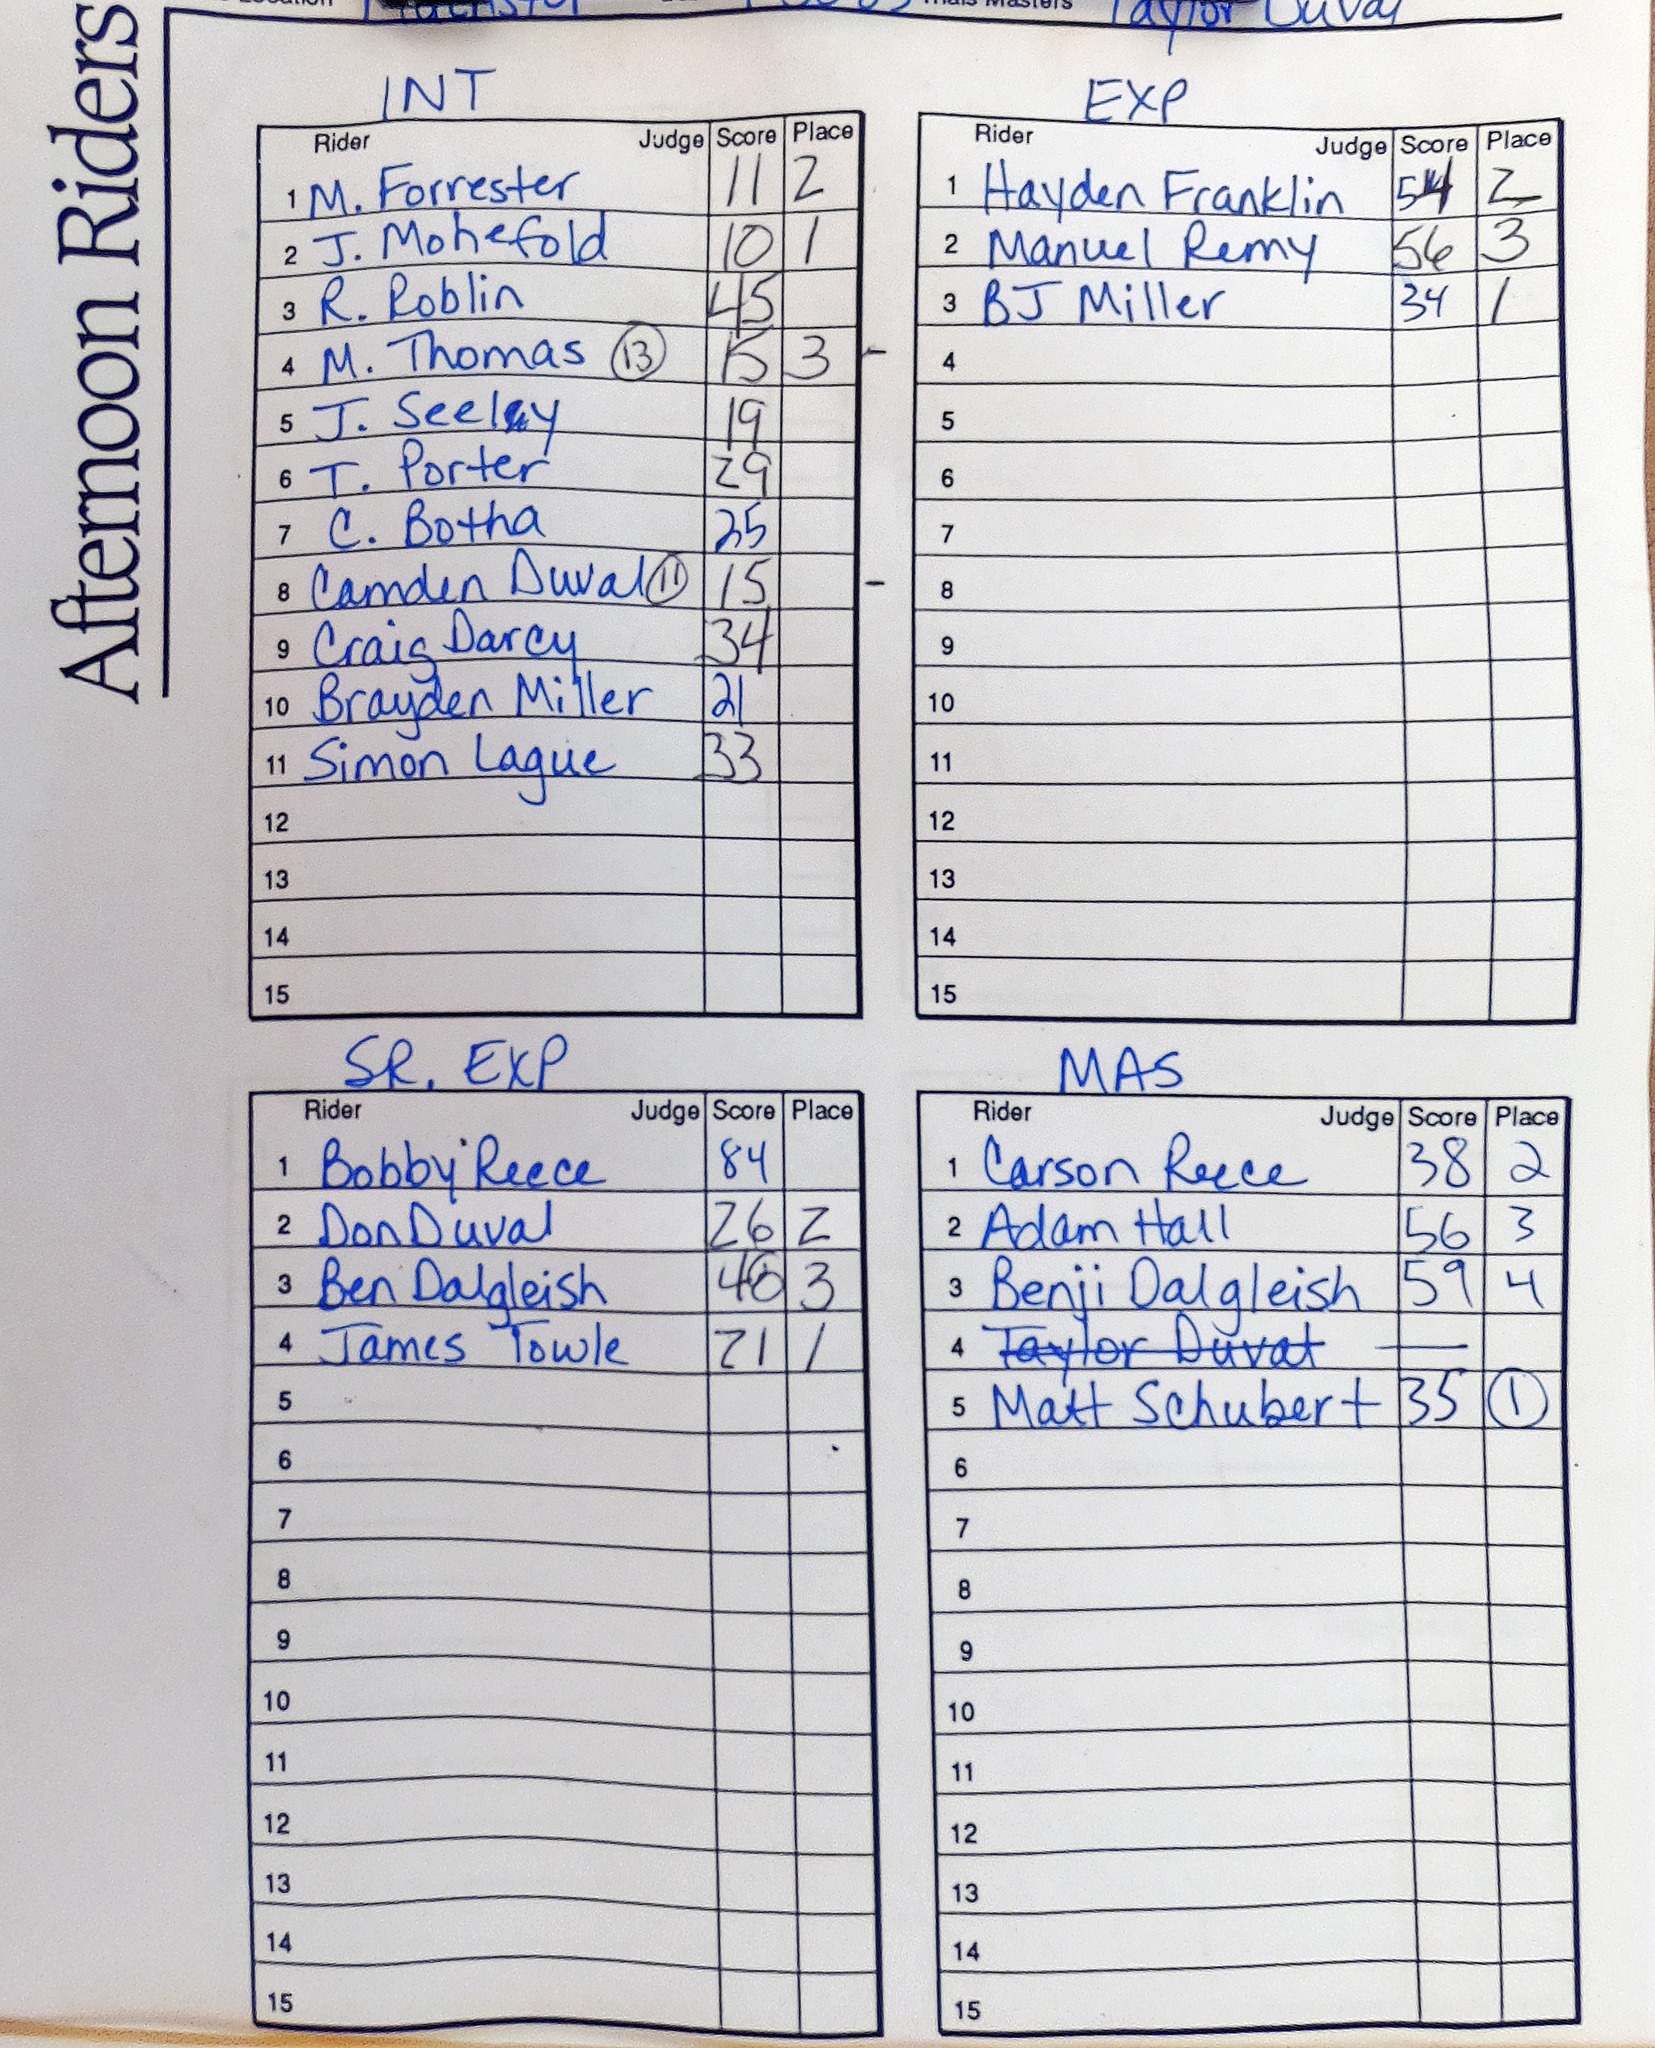 Trials Masters Taylor Duval
Afternoon Riders
INT
Rider Judge Score Place
1 M. Forrester 11 2
2 J. Mohefold 10 1
3 R. Roblin 45
4 M. Thomas 13 15 3 -
5 J. Seeley 19
6 T. Porter 29
7 C. Botha 25
8 Camden Duval 11 15 -
9 Craig Darcy 34
10 Brayden Miller 21
11 Simon Lague 33
12
13
14
15
EXP
Rider Judge Score Place
1 Hayden Franklin 54 2
2 Manuel Remy 56 3
3 BJ Miller 34 1
4
5
6
7
8
9
10
11
12
13
14
15
SR. EXP
Rider Judge Score Place
1 Bobby Reece 84
2 Don Duval 26 2
3 Ben Dalgleish 3
4 James Towle 21 1
5
6
7
8
9
10
11
12
13
14
15
MAS
Rider Judge Score Place
1 Carson Reece 38 2
2 Adam Hall 56 3
3 Benji Dalgleish 59 4
4 Taylor Duval —
5 Matt Schubert 35 1
6
7
8
9
10
11
12
13
14
15